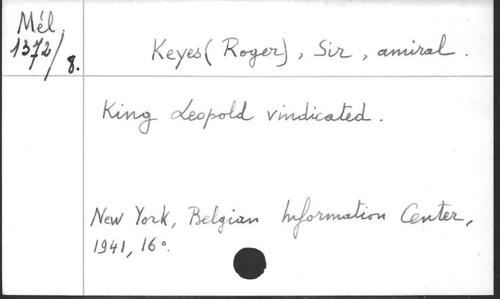 Mél.
1372/8.
Keyes (Roger), Sir, amiral.
King Leopold vindicated.
New York, Belgian Information Center,
1941, 16°.